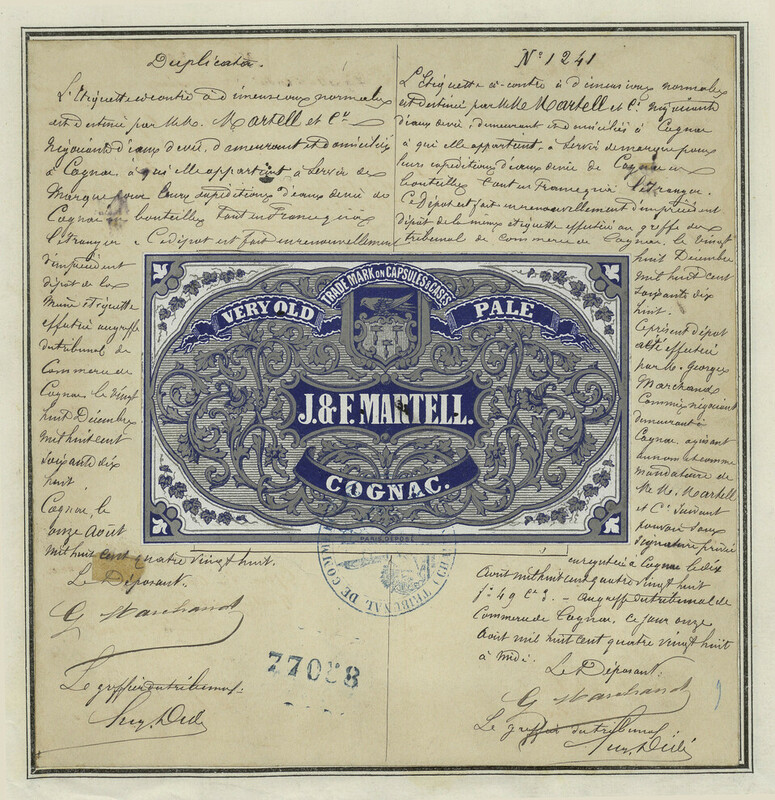 Duplicata.
L'Etiquette ci contre à dimensions normales
est destinée par M.M. Martell et Cie
Négociants d'eaux de vie, demeurant et domiciliés
à Cognac à qui elle appartient à servir de
Marque pour leurs expéditions d'eaux de vie de
Cognac en bouteilles tant en France qu'à
l'étranger. Ce dépôt est fait en renouvellement
d'un précédent
dépôt de la
même étiquette
effectué au greffe
du tribunal de
Commerce de
Cognac le vingt
huit Décembre
mil huit cent
soixante dix
huit
Cognac, le
onze Août
mil huit cent quatre vingt huit.
Le Déposant.
G Marchand
Le greffier du tribunal:
No 1241
L'Etiquette ci-contre à dimensions normales
est destinée par M.M. Martell et Cie Négociants
d'eaux de vie, demeurant et domiciliés à Cognac
à qui elle appartient, à servir de marque pour
leurs expéditions d'eaux de vie de Cognac en
bouteilles tant en France qu'à l'étranger.
Ce dépôt est fait en renouvellement d'un précédent
dépôt de la même étiquette effectué au greffe du
tribunal de commerce de Cognac, le vingt
huit Décembre
mil huit cent
soixante dix
huit.
Ce présent dépôt
a été effectué
par M. Georges
Marchand
Commis négociant
demeurant à
Cognac agissant
au nom et comme
mandataire de
M.M. Martell
et Cie suivant
pouvoir sous
signature privée
enregistré à Cognac le dix
Août mil huit cent quatre vingt huit
fo 49 Ce 3. - Au greffe du tribunal de
Commerce de Cognac, ce jour onze
Août mil huit cent quatre vingt huit
à midi.
Le Déposant:
G Marchand
Le greffier du tribunal:
TRADE MARK ON CAPSULES & CASES
VERY OLD PALE
J. & F. MARTELL.
COGNAC.
PARIS, DÉPOSÉ
TRIBUNAL DE COMM
77088